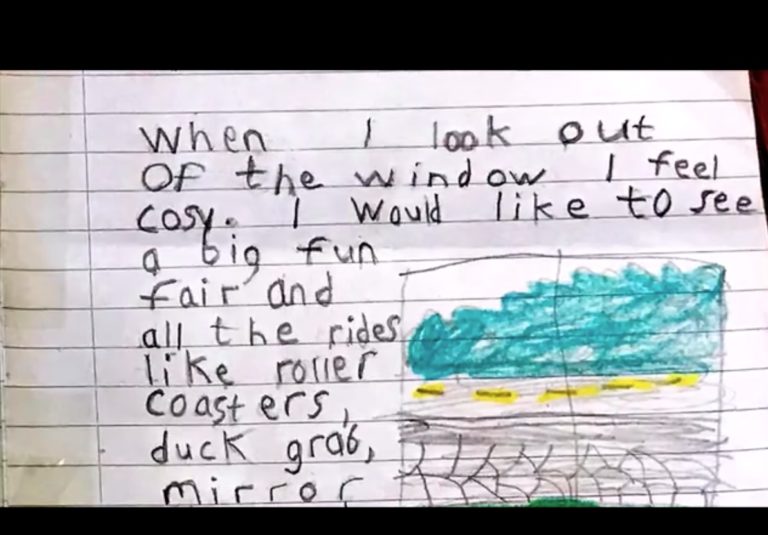 When I look out
Of the window I feel
cosy. I would like to see
a big fun
fair and
all the rides
like roller
coasters,
duck grab,
mirror